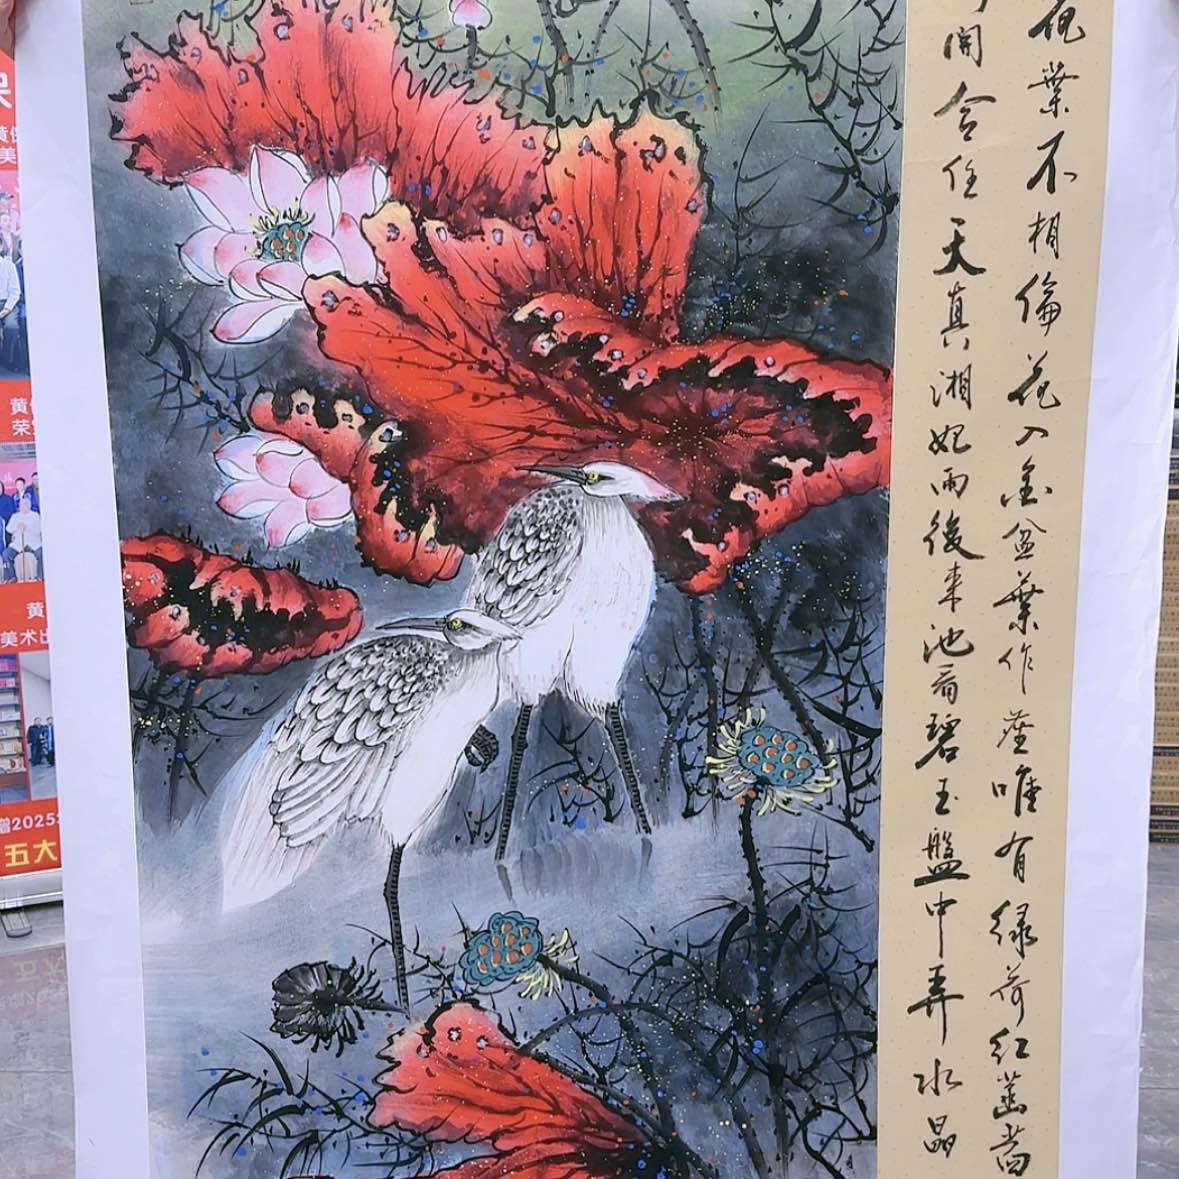 花葉不相倫花入金盆葉作塵唯有緑荷紅菡萏
開合任天真湘妃雨後来池看碧玉盤中弄水晶
美
黄
荣
黄
美术出
赠2025
五大